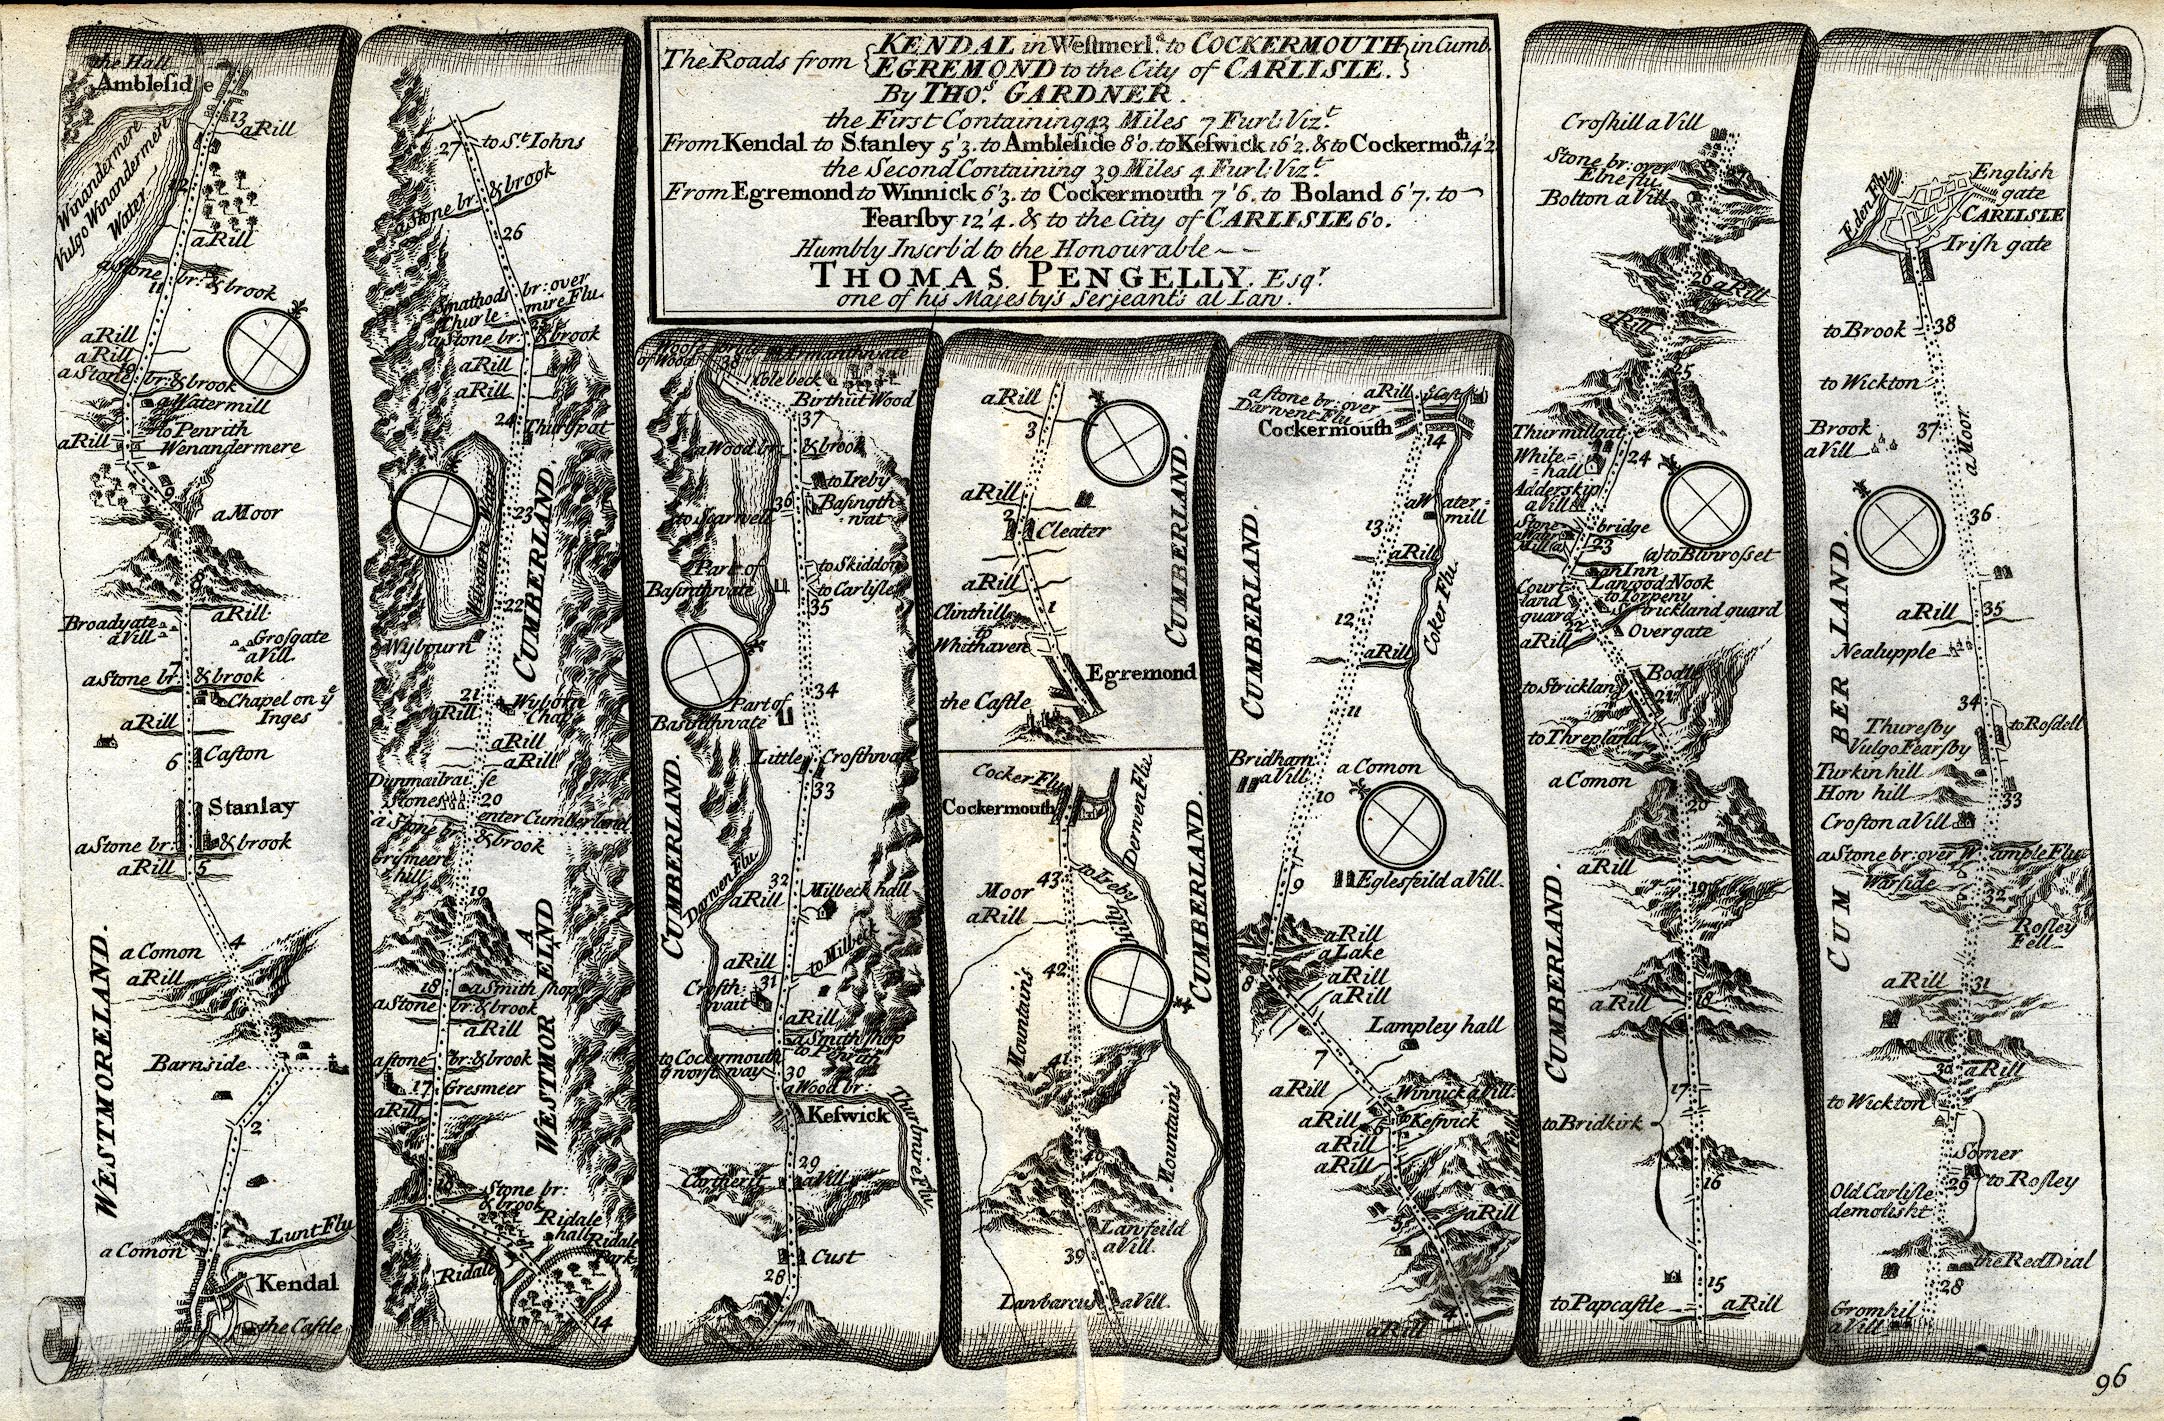 The Roads from {KENDAL in Weſtmerl.d to COCKERMOUTH} in Cumb.
EGREMOND to the City of CARLISLE.
By THO.s GARDNER.
the First Containing 43 Miles 7 Furl: Viz.t
From Kendal to Stanley 5'3. to Ambleſide 8'0. to Keſwick 16'2. & to Cockermo.th 14'2
the Second Containing 39 Miles 4 Furl: Viz.t
From Egremond to Winnick 6'3. to Cockermouth 7'6. to Boland 6'7. to
Fearſby 12'4. & to the City of CARLISLE 6'0.
Humbly Inscrib'd to the Honourable
THOMAS PENGELLY. Esq.r
one of his Majesty's Serjeants at Law.
the Hall
Ambleſide
13
a Rill
Winandermere
Vulgo Winandermere
Water
12
a Rill
a Stone br: & brook
11
a Rill
a Rill
10
a Stone br: & brook
a Watermill
to Penrith
a Rill
Wenandermere
9
a Moor
8
a Rill
Broadyate
a Vill
Groſgate
a Vill.
7
a Stone br. & brook
Chapel on ye
Inges
a Rill
6
Caſton
Stanlay
a Stone br: & brook
a Rill
5
4
a Comon
a Rill
Barnside
2
WESTMORELAND.
a Comon
Lunt Flu
Kendal
the Caſtle
27
to St. Iohns
a Stone br: & brook
26
Smathods br: over
Thurlemire Flu.
25
a Stone br: & brook
a Rill
a Rill
24
Thurſpat
23
CUMBERLAND.
22
Wyburn Water
Wybourn
21
a Rill
Wyborn
Chap.
a Rill
a Rill
Dunmailraiſe
Stones
20
enter Cumberland
a Stone br: & brook
Grymeere
hill
19
18
a Smith ſhop
a Stone br: & brook
a Rill
WESTMORELAND
a ſtone br: & brook
17
Gresmeer
a Rill
16
Stone br:
& brook
Ridale
hall
Ridale
Park
15
Ridale
14
of Wood
38
Armanthwate
Colebeck
Birthut Wood
37
a Wood br. & brook
to Ireby
36
Baſingthwat
to Scarwell
Part of
Baſinthwate
to Skiddow
to Carlisle
35
34
Part of
Baſinthwate
Little Croſthwat
33
CUMBERLAND.
32
Milbeck hall
a Rill
Darwen Flu
a Rill
to Milbeck
31
Croſthwait
a Rill
a Smith ſhop
to Penrith
to Cockermouth
ye worſt way
30
a Wood br:
Keſwick
Thurlmire Flu
29
Cartherit a Vill
Cust
28
a Rill
3
a Rill
2
Cleater
CUMBERLAND.
a Rill
Clinthills
1
to
Whithaven
Egremond
the Caſtle
Cocker Flu
Cockermouth
Derwen Flu
CUMBERLAND.
43
to Ireby
Moor
a Rill
hilly
42
Mountains
41
40
Mountains
Lanfeild
a Vill.
39
Lanbarcus a Vill.
a Rill
Caſt
a ſtone br: over
Darwent Flu
Cockermouth
14
a Watermill
13
CUMBERLAND.
a Rill
Coker Flu.
12
a Rill
11
Bridham
a Vill
a Comon
10
Egleſfeild a Vill.
9
a Rill
a Lake
a Rill
a Rill
8
Lampley hall
7
a Rill
Winnick a Vill.
a Rill
6
Keſwick
a Rill
a Rill
5
a Rill
4
a Rill
Croſhill a Vill
Stone br: over
Elne flu
Bolton a Vill
26
a Rill
a Rill
25
Thurmillgate
White=
=hall
24
Adderskip
a Vill
Stone bridge
a Water
Mill (a)
23
(a) to Blinroſset
an Inn
Lanwood Nook
Courtland
guard
to Torpeny
Strickland guard
22
a Rill
Overgate
to Strickland
Bodle
21
to Threpland
a Comon
20
a Rill
19
CUMBERLAND.
a Rill
18
17
to Bridkirk
16
15
to Papcaſtle
a Rill
Eden Flu
English
gate
CARLISLE
Irish gate
to Brook
38
to Wickton
a Moor
Brook
a Vill
37
36
CUMBERLAND.
a Rill
35
Nealupple
34
Thuresby
Vulgo Fearsby
to Rosdell
Turkin hill
Hon hill
33
Crofton a Vill
a Stone br: over Wample Flu
Warſide
32
Roſley
Fell
a Rill
31
30
a Rill
to Wickton
Somer
29
to Roſley
Old Carliſle
demoliſht
the Red Dial
28
Gromhil
a Vill
96